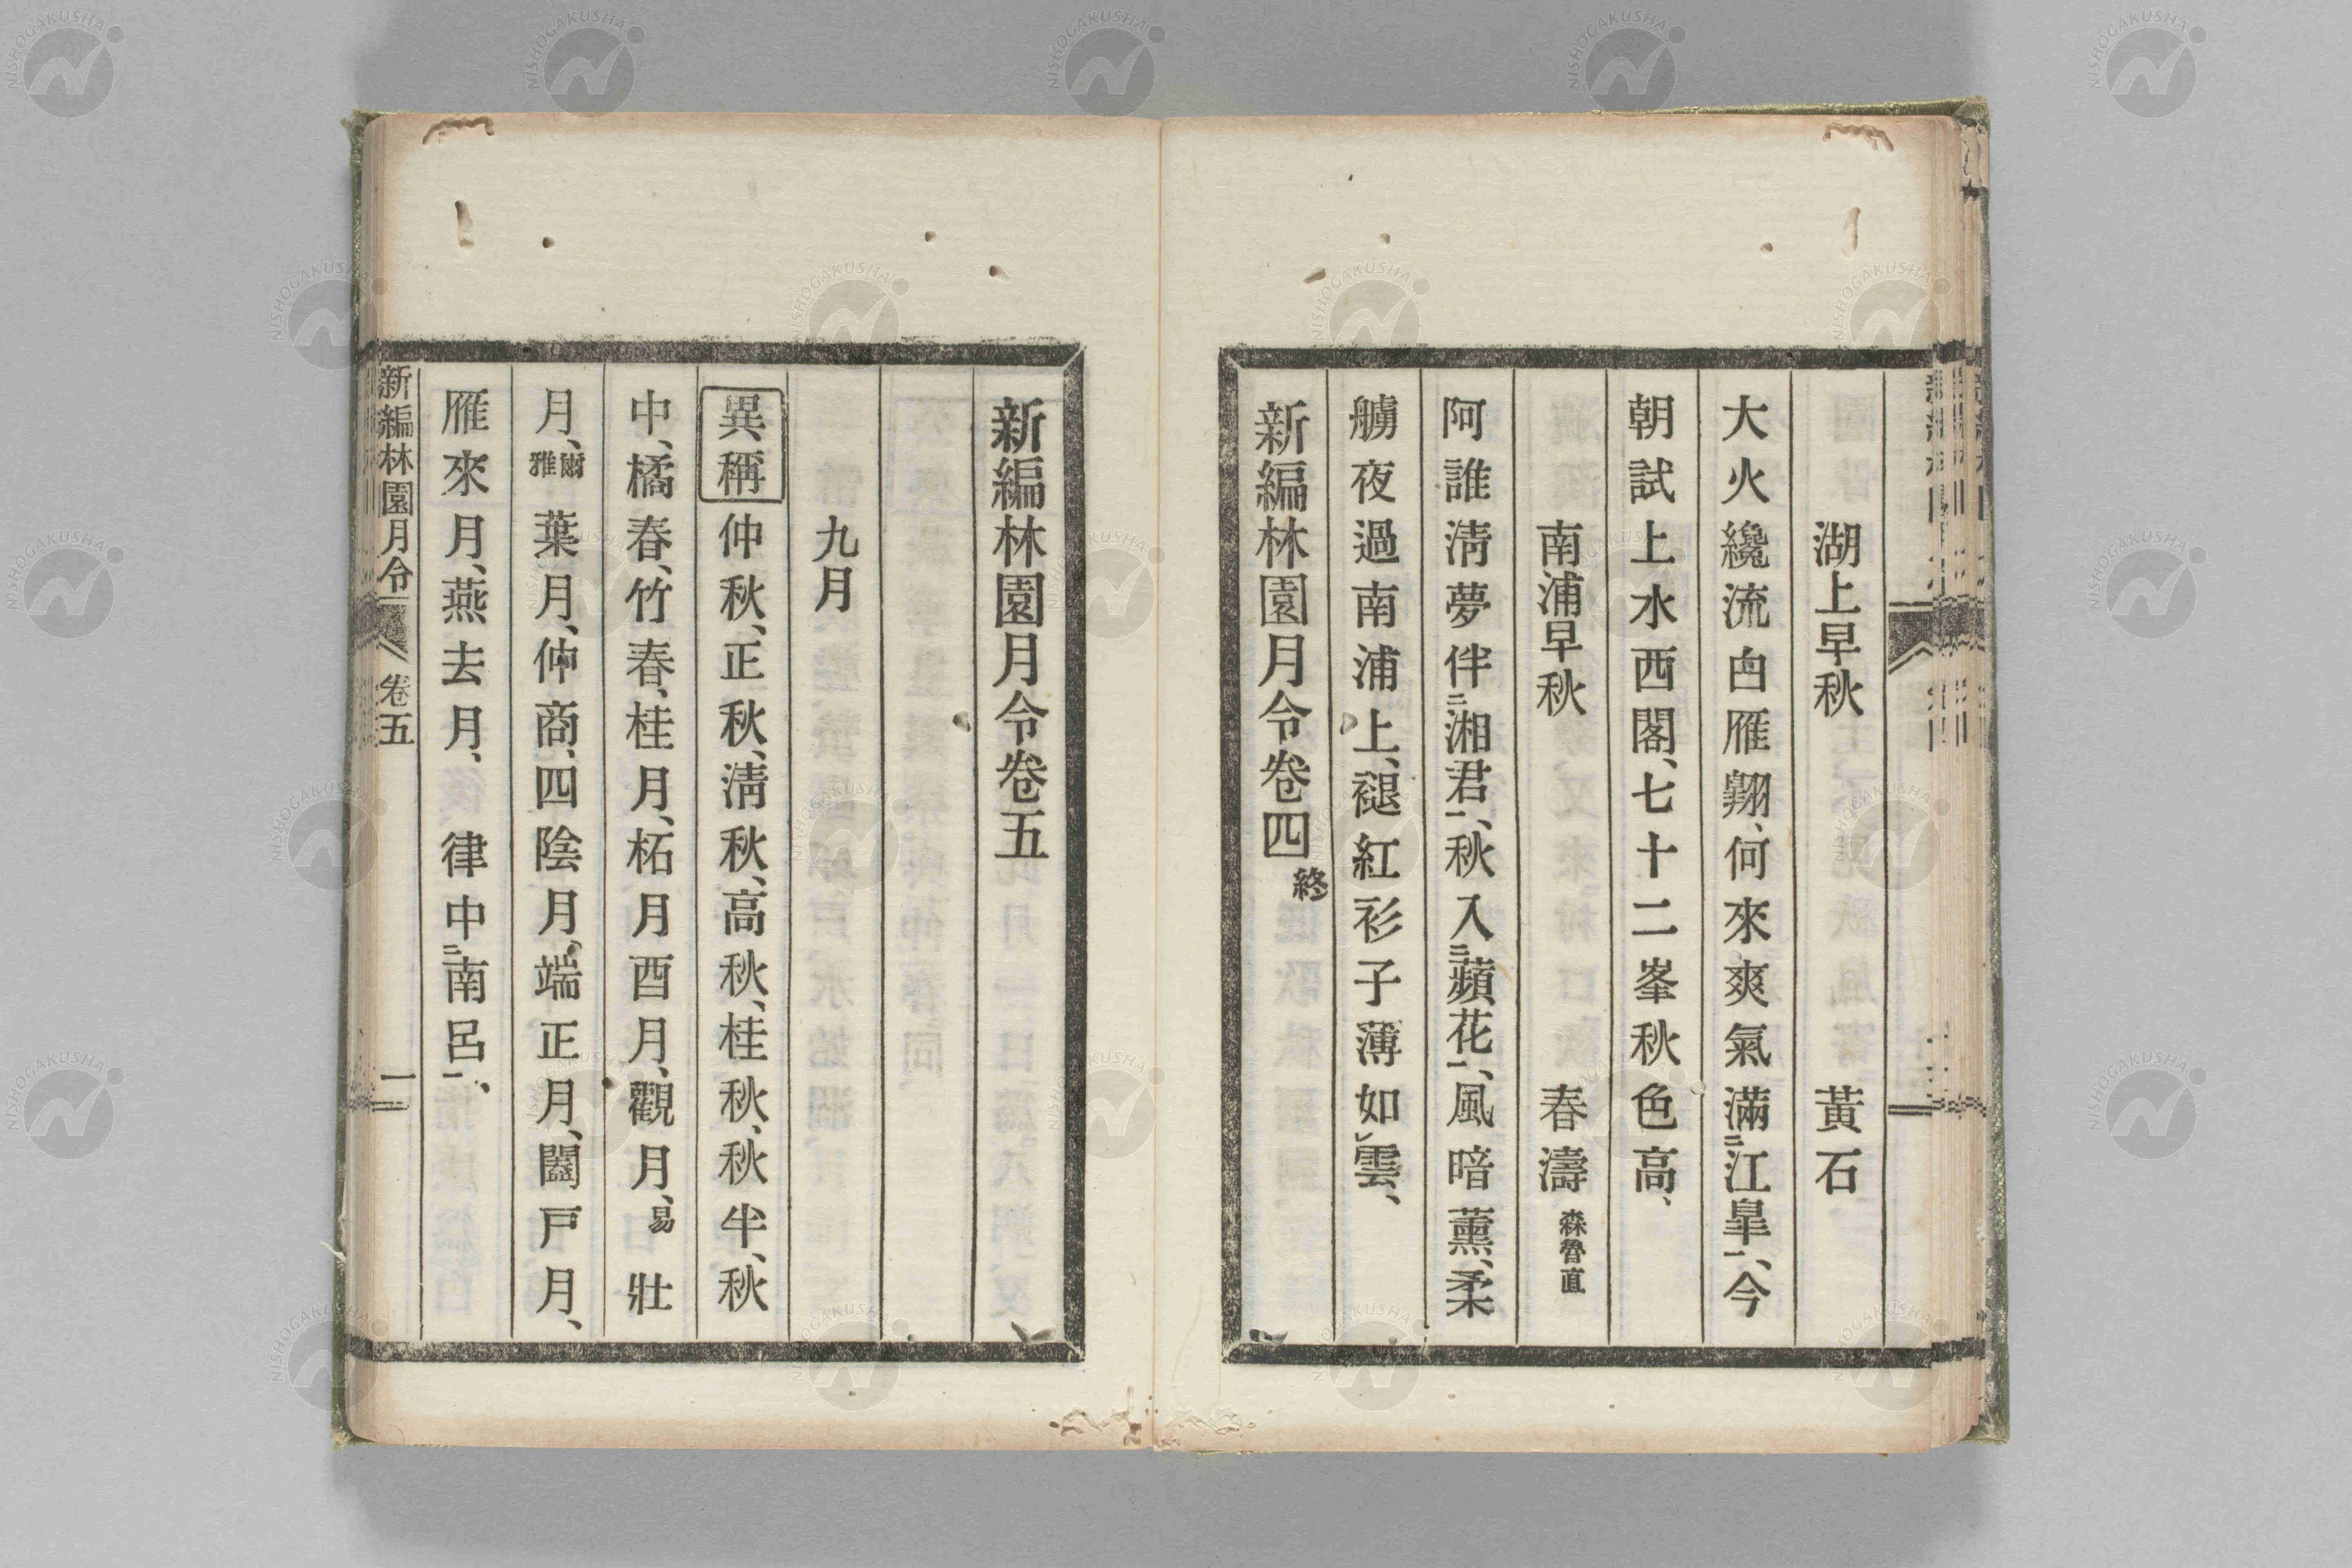 湖上早秋　黃石
大火纔流白雁翔、何來爽氣滿二江皐一、今
朝試上水西閣、七十二峯秋色高、
南浦早秋　春濤　森魯直
阿誰淸夢伴二湘君一、秋入二蘋花一、風暗薰、柔
艣夜過南浦上、褪紅衫子薄如レ雲、
新編林園月令卷四終
新編林園月令卷五
九月
異稱　仲秋、正秋、淸秋、高秋、桂秋、秋半、秋
中、橘春、竹春、桂月、柘月酉月、觀月、易　壯
月、爾雅　葉月、仲商、四陰月、端正月、闔戸月、
雁來月、燕去月、　律中二南呂一、
新編林園月令　卷五　一
NISHOGAKUSHA